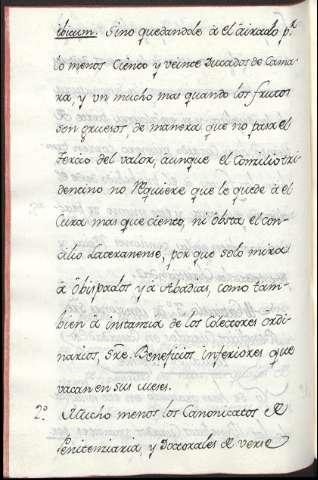 ibicum. Sino quedandole â el Cüirado pr.
lo menos Ciento y veinte Ducados de Cama-
ra, y un mucho mas quando los frutos
son gruesos, de manera que no pase el
Tercio del valor, aunque el Comiliotri-
dentino no Rquiere que le quede â el
Cura mas que ciento, ni obsta, el con-
cilio Lateranense, por que solo mira
â Obispados y â Abadias, como tam-
bien â instancia de los Colectores Ordi-
narios, Sre. Beneficios inferiores que
vacan en sus meses.
2º. Mucho menos los Canonicatos de
Penitenziaria, y Doctorales de verse